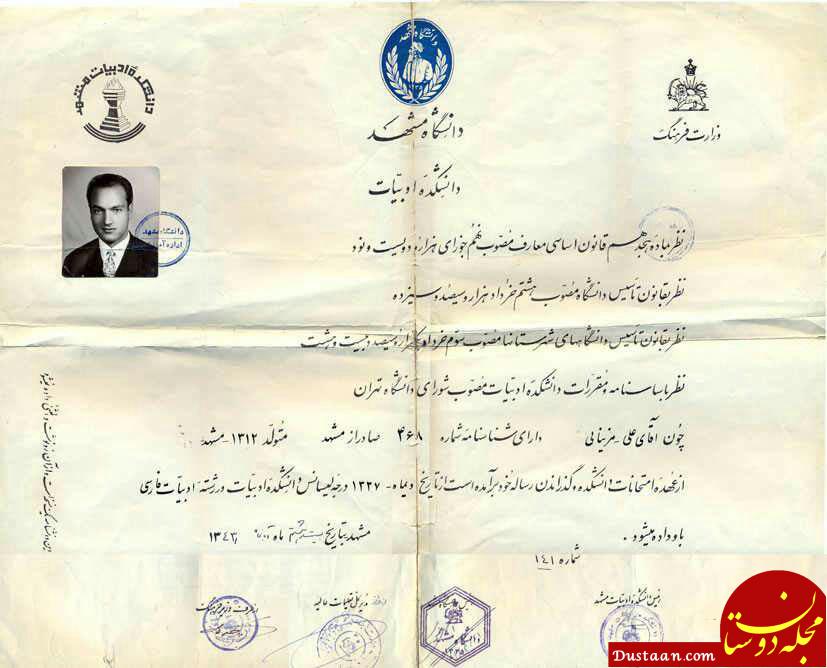 دانشگاه مشهد
دانشکده ادبیات مشهد
دانشگاه مشهد
وزارت فرهنگ
دانشکده ادبیات
دانشگاه مشهد
نظر بماده هیجدهم قانون اساسی معارف مصوب نهم جوزای هزار و دویست و نود
نظر بقانون تأسیس دانشگاه مصوب هشتم خرداد هزار و سیصد و سیزده
نظر بقانون تأسیس دانشگاههای شهرستانها مصوب سوم خرداد یکهزار و سیصد و بیست و هشت
نظر باساسنامه و مقررات دانشکده ادبیات مصوب شورای دانشگاه تهران
چون آقای علی - مزینانی دارای شناسنامه شماره ۴۶۸ صادر از مشهد متولد ۱۳۱۲ - مشهد
از عهده امتحانات دانشکده و گذراندن رساله خود برآمده است از تاریخ دیماه - ۱۳۳۷ درجه لیسانس دانشکده ادبیات در رشته ادبیات فارسی
باو داده میشود .
مشهد بتاریخ ماه
شماره ۱۴۱
رئیس دانشکده ادبیات مشهد
مدیر کل تعلیمات عالیه
از طرف وزیر فرهنگ
دانشگاه مشهد
مجله دوستان
Dustaan.com